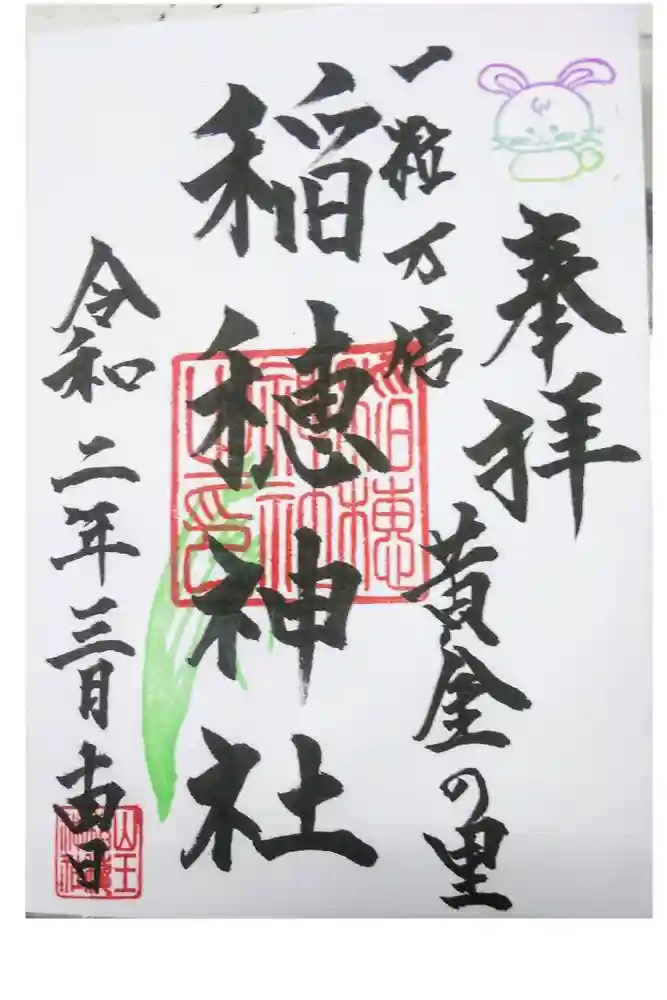 奉拝
一粒万倍
黄金の里
稲穂神社
稲穂
神社
之印
令和二年三月
山王